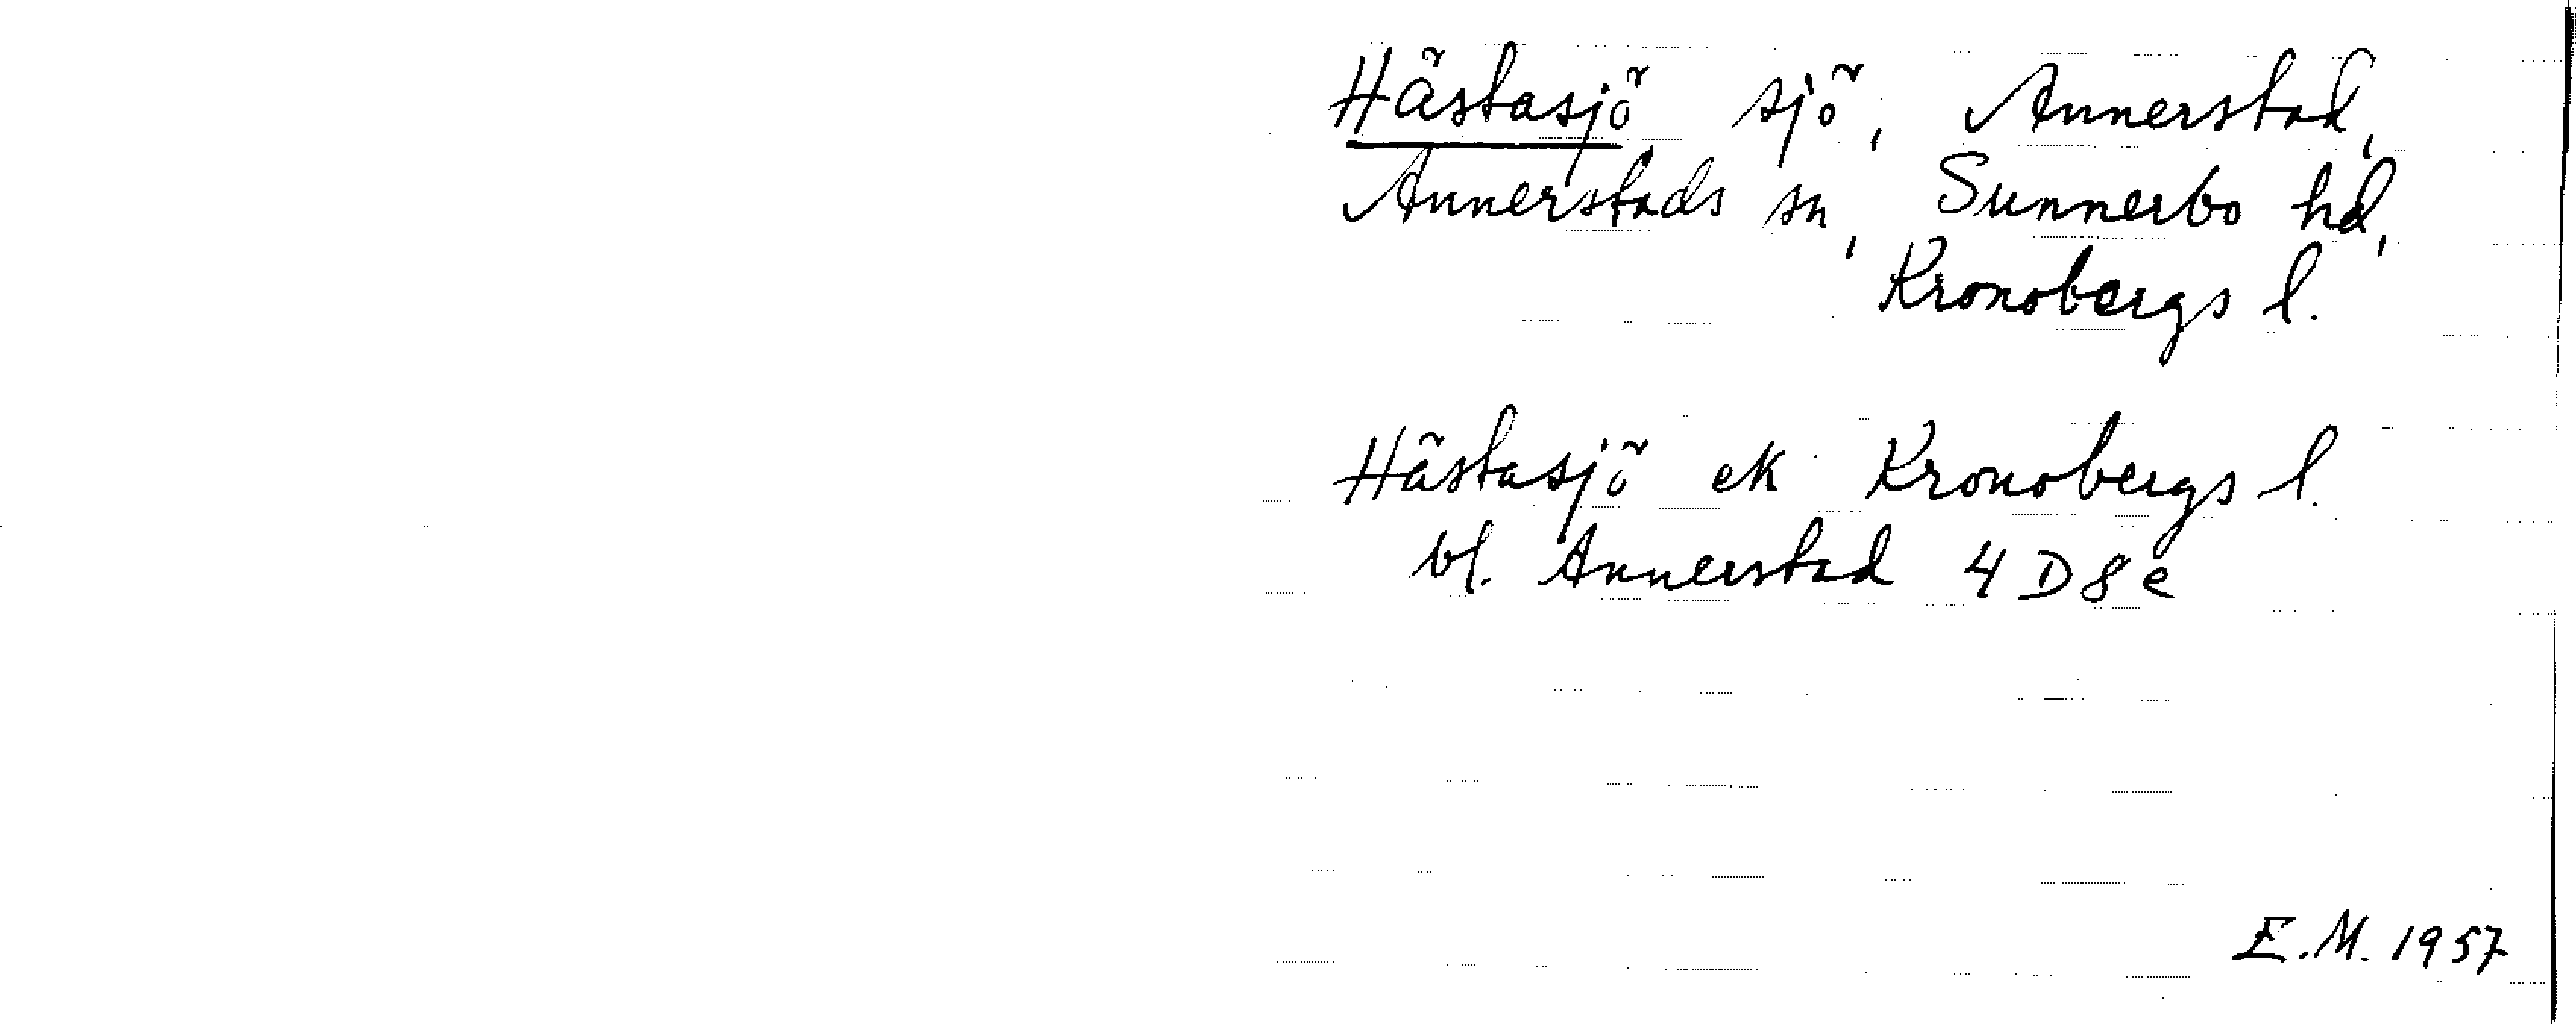 Hästasjö sjö, Annerstad,
Annerstads sn, Sunnerbo hd,
Kronobergs l.
Hästasjö ek Kronobergs l.
bl. Annerstad 4 D 8 e
E.M. 1957